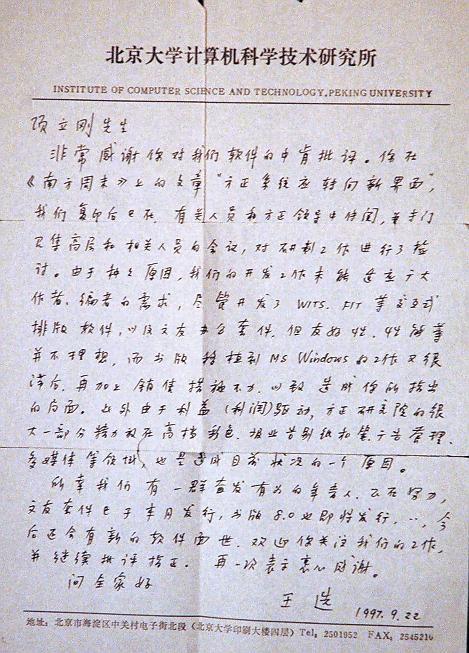 北京大学计算机科学技术研究所
INSTITUTE OF COMPUTER SCIENCE AND TECHNOLOGY, PEKING UNIVERSITY
项立刚先生
非常感谢你对我们软件的中肯批评。你在
《南方周末》上的文章“方正系统应转向新界面”,
我们复印后已在有关人员和方正领导中传阅,并专门
召集高层和相关人员的会议,对研制工作进行了检
讨。由于种种原因,我们的开发工作未能适应广大
作者、编者的需求,尽管开发了WITS、FIT等交互式
排版软件,以及文友办公套件,但友好性、性能等
并不理想,而书版移植到MS Windows的工作又很
滞后,再加上销售措施不力,以致造成你所指出
的局面。此外由于利益(利润)驱动,方正研究院的很
大一部分精力放在高档彩色、报业告别纸和笔、广告管理、
多媒体等领域,也是造成目前状况的一个原因。
所幸我们有一群奋发有为的年青人,正在努力,
文友套件已于本月发行,书版8.0也即将发行,…,今
后还会有新的软件面世,欢迎你关注我们的工作,
并继续批评指正。再一次表示衷心感谢。
问全家好
王选
1997.9.22
地址:北京市海淀区中关村电子街北段(北京大学印刷大楼四层)Tel:2501952 FAX:2545216